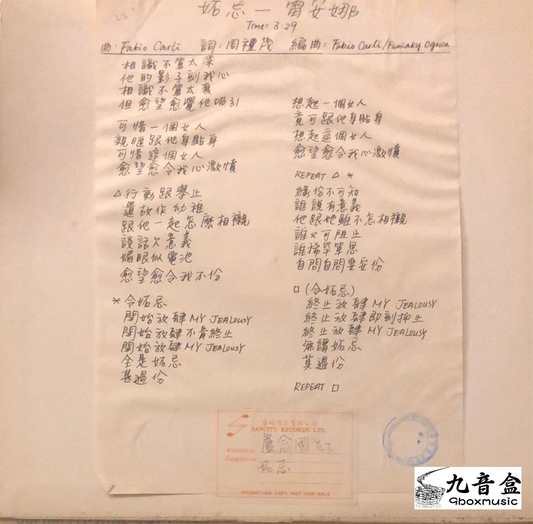 妬忌 — 雷安娜
Time: 3:29
曲: Fabio Carli 詞: 周禮茂 編曲: Fabio Carli/Fumiaky Ogawa
相識不算太深
他的影子刻我心
相識不算太衰
但愈望愈覺他吸引
可惜一個女人
親暱跟他身貼身
可惜這個女人
愈望愈令我心激憤
△ 行動跟舉止
還故作幼稚
跟他一起怎麽相襯
談話欠意義
媚眼似電池
愈望愈令我不份
* 令妬忌
開始放肆 MY JEALOUSY
開始放肆不肯終止
開始放肆 MY JEALOUSY
全是妬忌
甚過份
想起一個女人
竟可跟他身貼身
想起這個女人
愈望愈令我心激憤
REPEAT △ *
緣份不可知
誰說有意義
他跟她雖不怎相襯
誰又可阻止
誰稀罕單思
自問自問要安份
□ (令妬忌)
終止放肆 MY JEALOUSY
終止放肆即刻抑止
終止放肆 MY JEALOUSY
無謂妬忌
莫過份
REPEAT □
SANCITY RECORDS LTD
Attention
盧念國先生
Suggestion
妬忌
PROMOTION COPY NOT FOR SALE
九音盒
9boxmusic